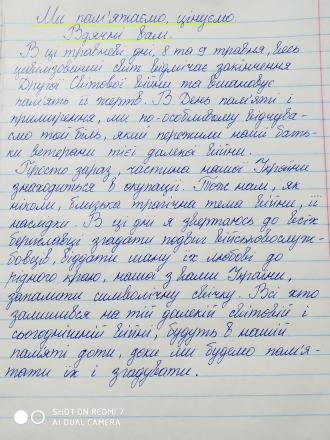 Ми пам'ятаємо, цінуємо.
Вдячні вам.
В ці травневі дні, 8 та 9 травня, весь
цивілізований світ відмічає закінчення
Другої Світової війни та вшановує
пам'ять її жертв. В День пам'яті і
примирення, ми по-особливому відчува-
ємо той біль, який пережили наші бать-
ки ветерани тієї далекої війни.
Просто зараз, частина нашої України
знаходиться в окупації. Тож нам, як
ніколи, близька трагічна тема війни, її
наслідки. В ці дні я звертаюсь до всіх
бериславці згадати подвиг військовослуж-
бовців, віддати шану їх любові до
рідного краю, нашої з вами України,
запалити символічну свічку. Всі хто
залишився на тій далекій світовій і
сьогоднішній війні, будуть в нашій
пам'яті доти, доки ми будемо пам'я-
тати їх і згадувати.
SHOT ON REDMI 7
AI DUAL CAMERA